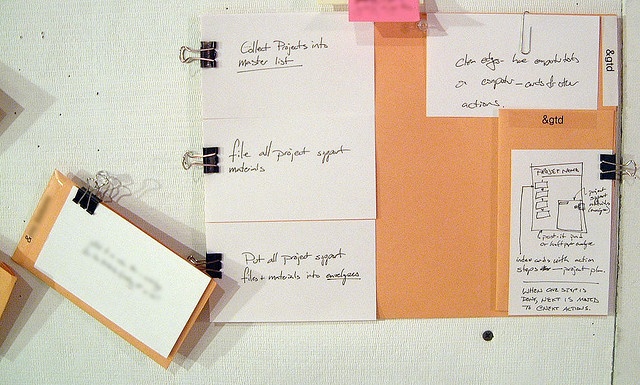 Collect Projects into
master list
file all project support
materials
Put all project support
files + materials into envelopes
Clean edges - have
or computer - cards & other
actions.
&gtd
&gtd
PROJECT NAME
project
support
materials
post-it pad
or half per envelope
index cards with action
steps — project plan.
WHEN ONE STEP IS
DONE, NEXT IS MOVED
TO @NEXT ACTIONS.
&